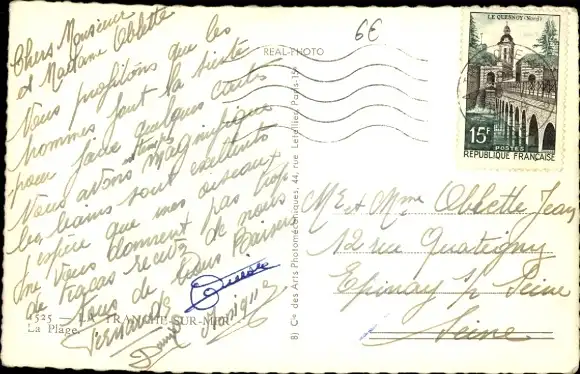 Chers Monsieur
et Madame Oblette
Nous profitons que les
hommes font la sieste
pour faire quelques cartes
Nous avons un temps magnifique
les bains sont excellents
j'espère que mes oiseaux
ne vous donnent pas trop
de tracas recevez de nous
tous de Gros Baisers
Fernande
Monique
1525 - LA TRANCHE-SUR-MER
La Plage.
REAL-PHOTO
6€
8) Cie des Arts Photomécaniques, 44, rue Letellier, Paris-15e
LE QUESNOY (Nord)
15F
POSTES
REPUBLIQUE FRANÇAISE
Mr et Mme Oblette Jean
12 rue Quatigny
Epinay s/ Seine
Seine